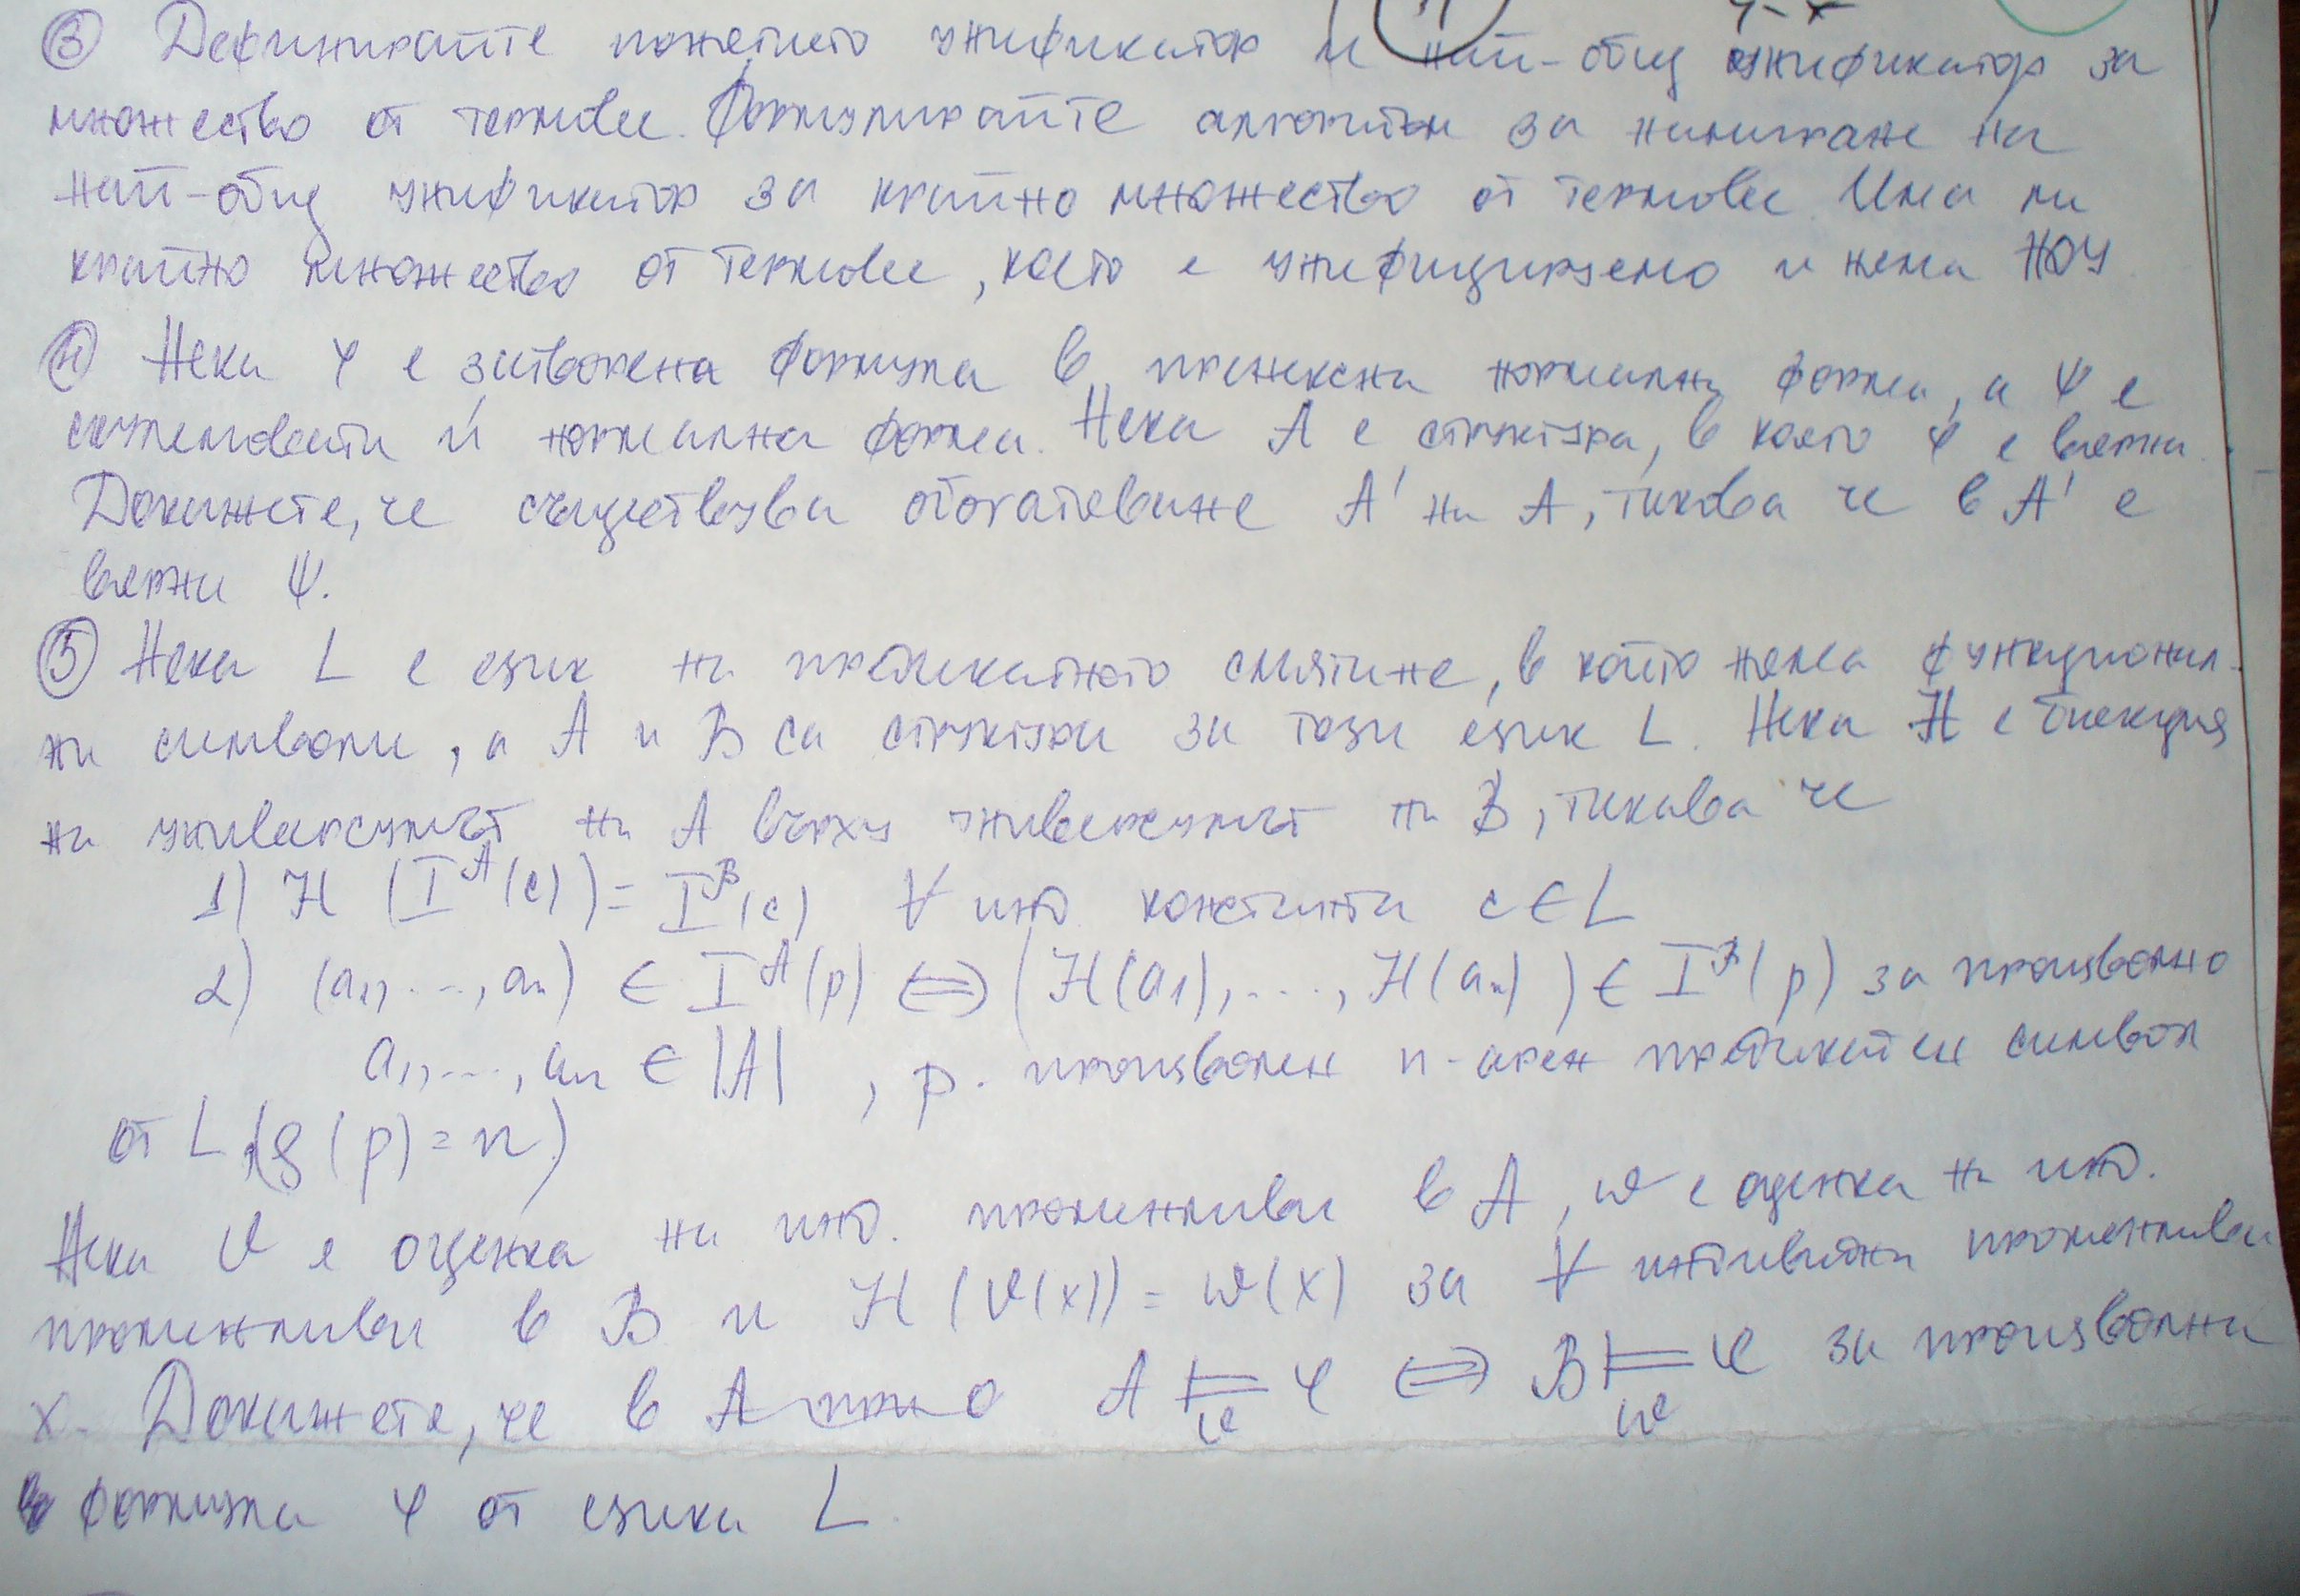 ③ Дефинирайте понятието унификатор и най-общ унификатор за
множество от термове. Формулирайте алгоритъм за намиране на
най-общ унификатор за крайно множество от термове. Има ли
крайно множество от термове, което е унифицируемо и няма НОУ
④ Нека φ е затворена формула в пренексна нормална форма, а ψ е
скулемовата ѝ нормална форма. Нека A е структура, в която φ е вярна.
Докажете, че съществува обогатяване A' на A, такова че в A' е
вярна ψ.
⑤ Нека L е език на предикатното смятане, в който няма функционал-
ни символи, а A и B са структури за този език L. Нека H е биекция
на универсумът на A върху универсумът на B, такава че
1) H (I^A(c)) = I^B(c) ∀ инд. константа c ∈ L
2) (a₁, ..., aₙ) ∈ I^A(p) ⇔ (H(a₁), ..., H(aₙ)) ∈ I^B(p) за произволно
a₁, ..., aₙ ∈ |A| , p. произволен n-арен предикатен символ
от L (g(p) = n)
Нека v е оценка на инд. променливи в A, w е оценка на инд.
променливи в B и H (v(x)) = w(x) за ∀ индивидна променлива
x. Докажете, че в A A ⊨ᵥ φ ⇔ B ⊨_w φ за произволна
формула φ от езика L.